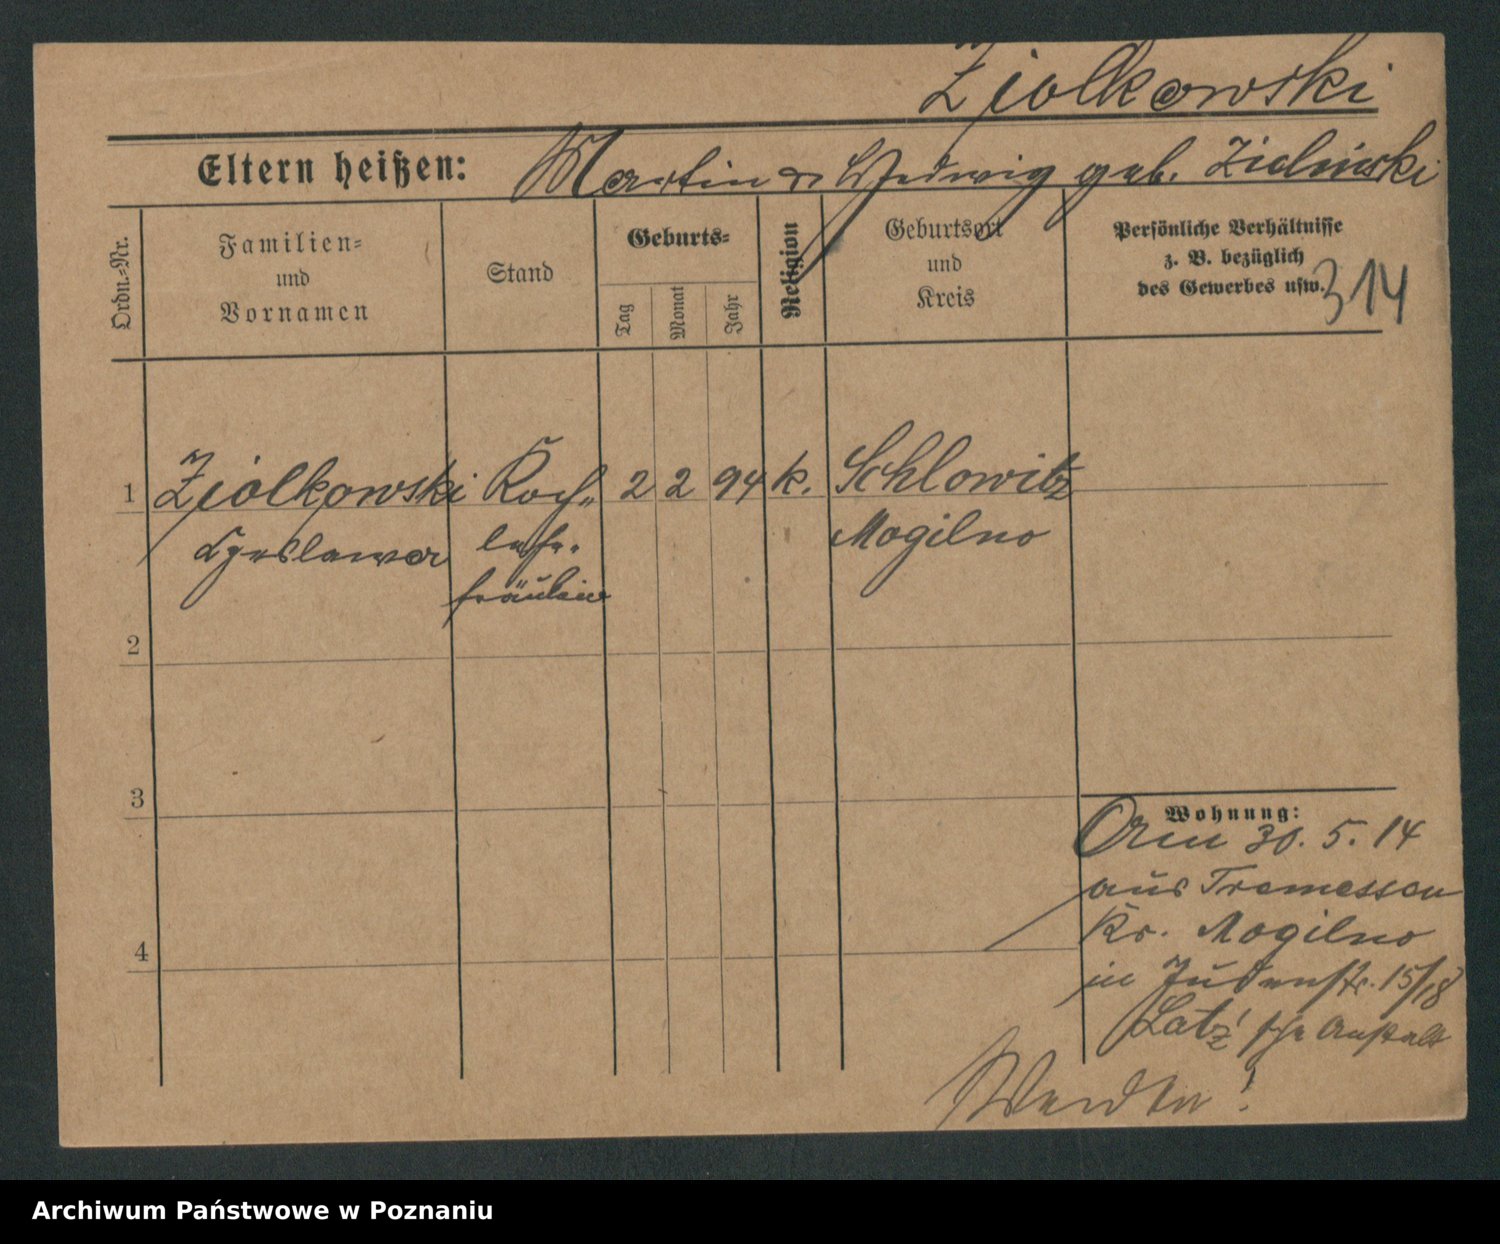 Ziolkowski
Eltern heißen: Martin u Hedwig geb. Zielinski
Ordn.-Nr.
Familien- und Vornamen
Stand
Geburts-
Tag
Monat
Jahr
Religion
Geburtsort und Kreis
Persönliche Verhältnisse
z. B. bezüglich
des Gewerbes usw.
314
1 Ziolkowski Koch- 2 2 94 k. Schlowitz
Czeslawa lehr- Mogilno
fräulein
2
3
4
Wohnung:
30. 5. 14
aus Tremessen
Kr. Mogilno
in Judenstr. 15/18
Latz'sche Anstalt